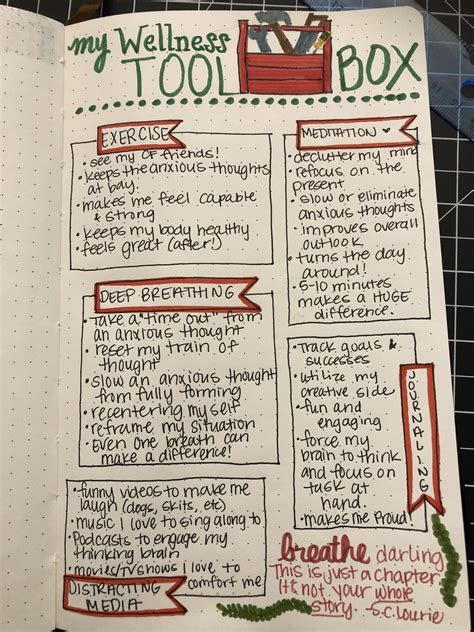 my Wellness
TOOL BOX
EXERCISE
• see my OF friends!
• keeps the anxious thoughts
at bay.
• makes me feel capable
& strong
• keeps my body healthy
• feels great (after!)
MEDITATION
• declutter my mind
• refocus on the
present
• slow or eliminate
anxious thoughts
• improves overall
outlook
• turns the day
around!
• 5-10 minutes
makes a HUGE
difference.
DEEP BREATHING
• take a "time out" from
an anxious thought
• reset my train of
thought
• slow an anxious thought
from fully forming
• recentering myself
• reframe my situation
• Even one breath can
make a difference!
• Track goals &
successes
• utilize my
creative side
• fun and
engaging
• force my
brain to think
and focus on
task at
hand.
• makes me Proud!
JOURNALING
• funny videos to make me
laugh (dogs, skits, etc)
• music I love to sing along to
• Podcasts to engage my
thinking brain
• movies/TV shows i love to
comfort me
DISTRACTING
MEDIA
breathe darling
This is just a chapter
It's not your whole
story. - S.C. Lourie